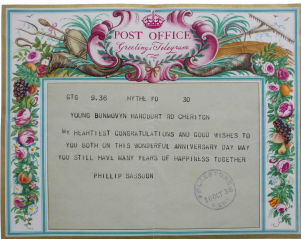 POST OFFICE
Greetings Telegram
GTG 9.36 HYTHE FO 30
YOUNG HARCOURT RD CHERITON
MY HEARTIEST CONGRATULATIONS AND GOOD WISHES TO
YOU BOTH ON THIS WONDERFUL ANNIVERSARY DAY MAY
YOU STILL HAVE MANY YEARS OF HAPPINESS TOGETHER
PHILLIP SASSOON
FOLKESTONE